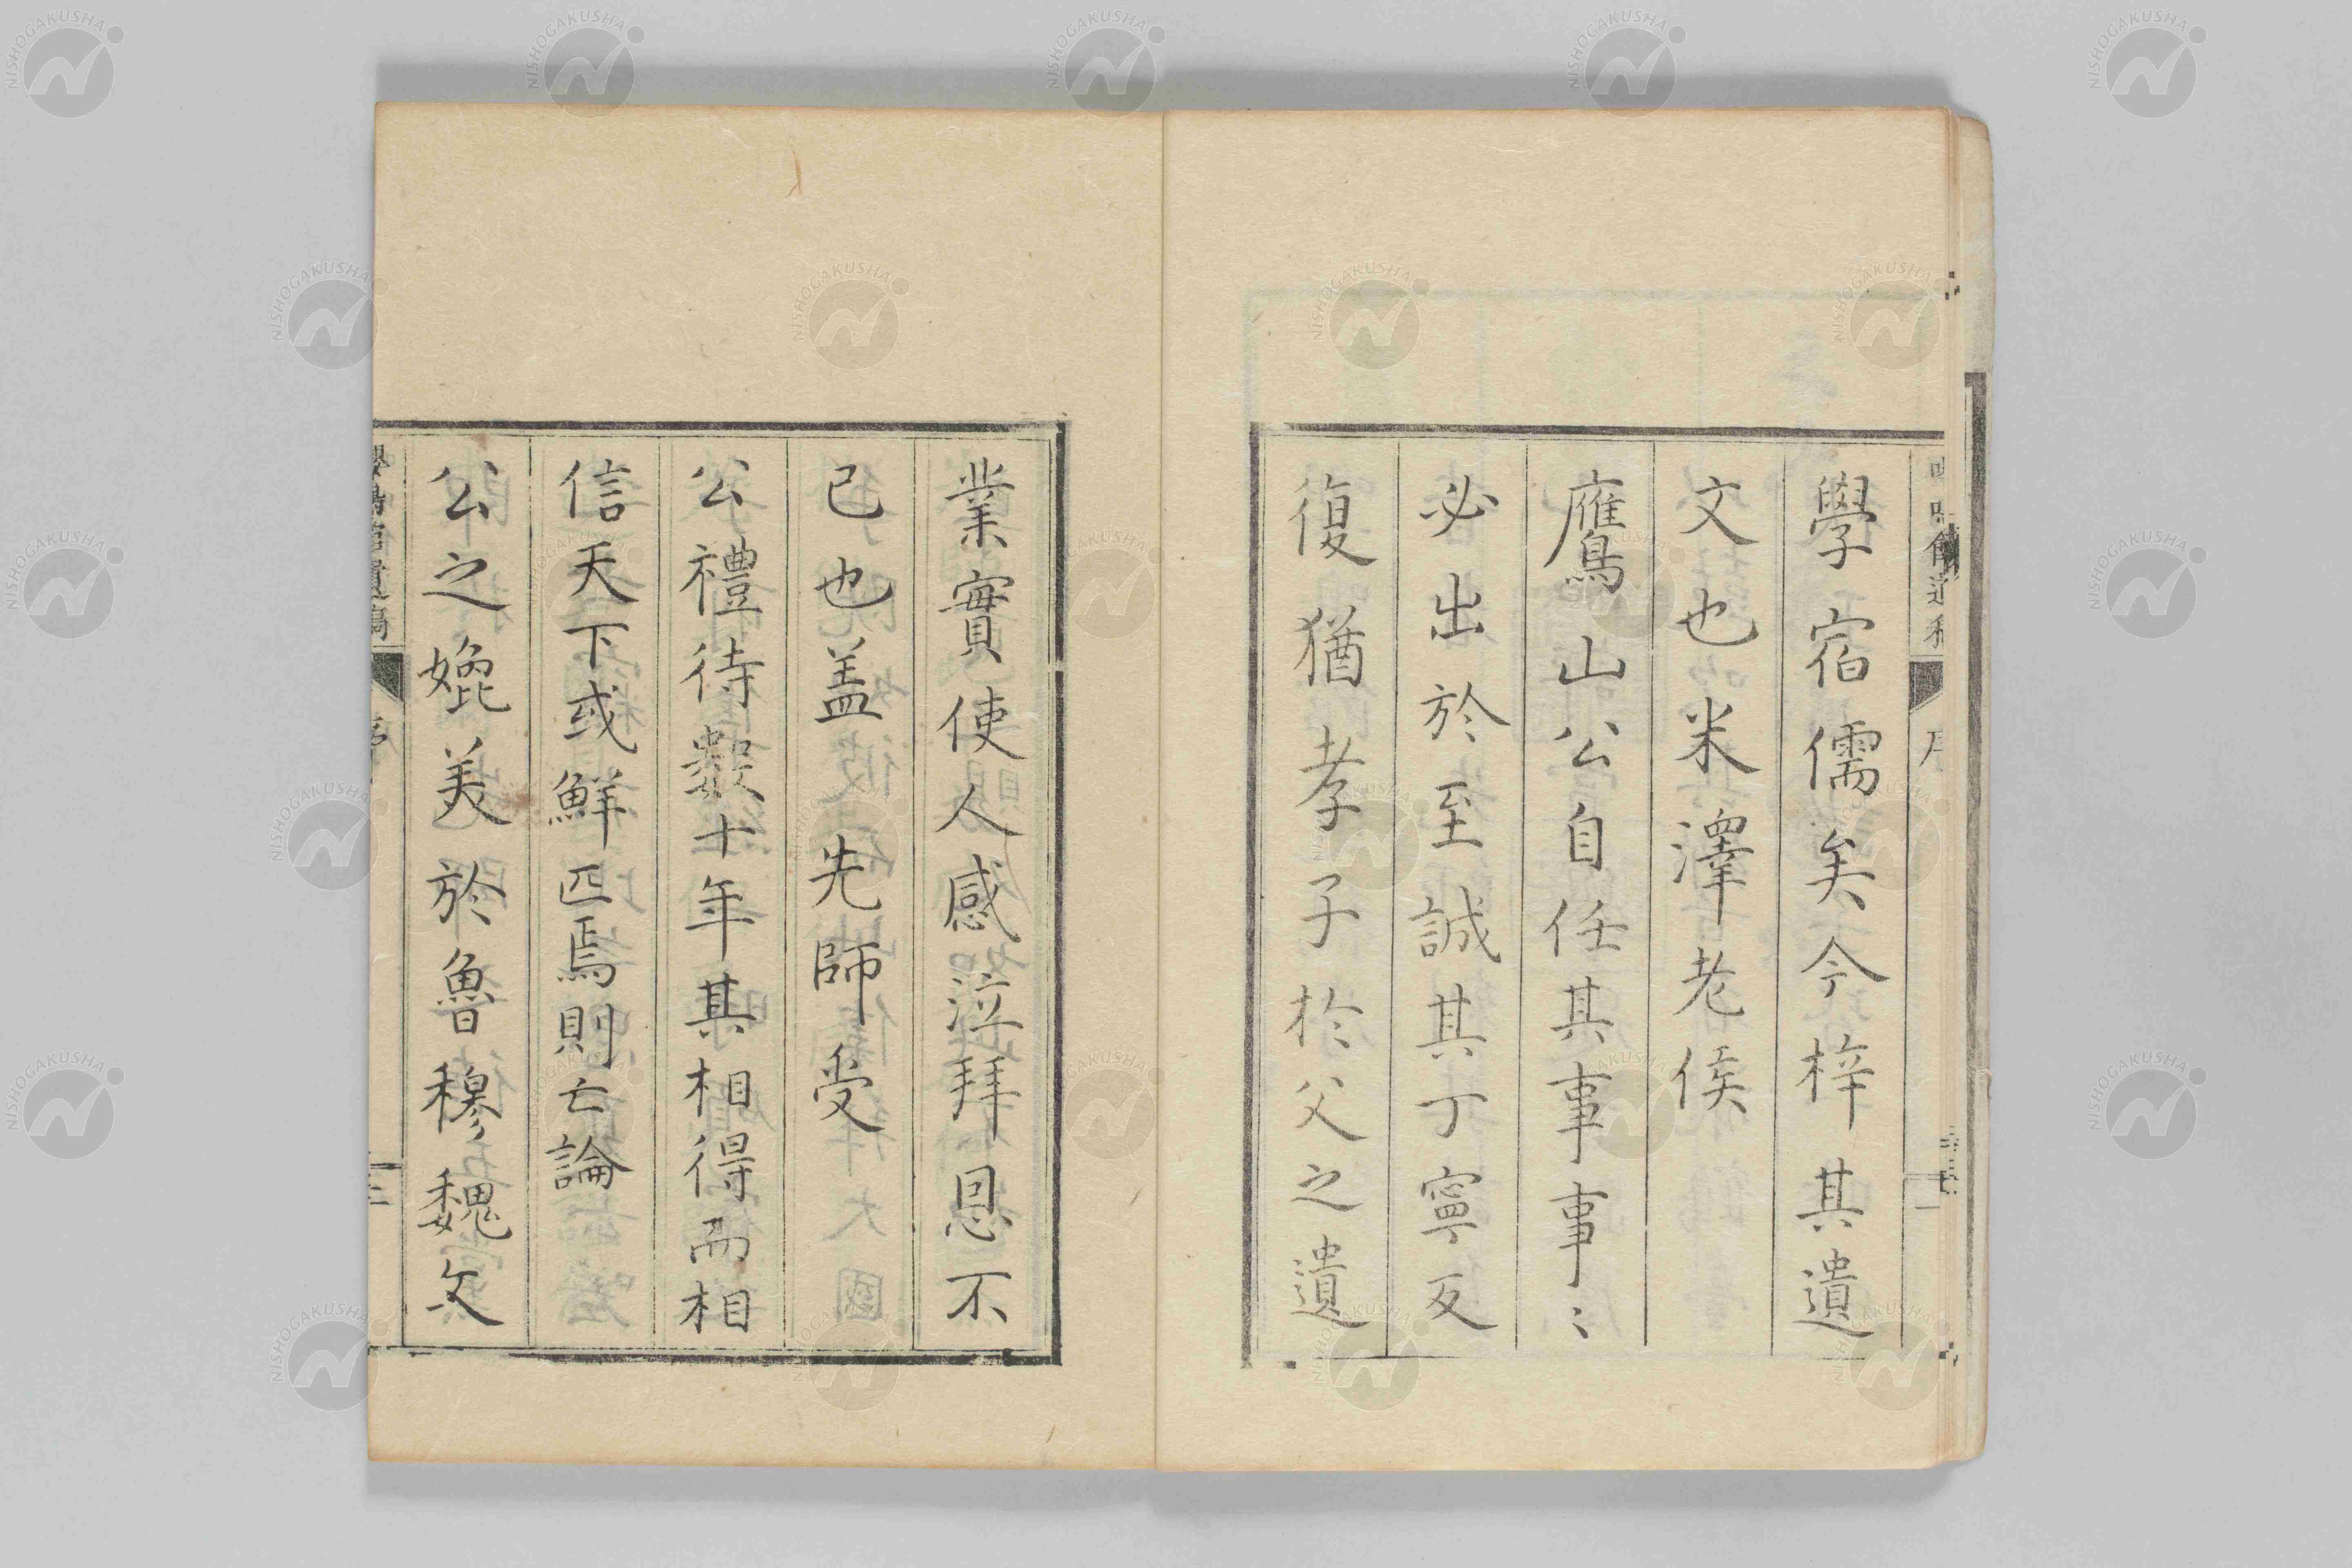 學宿儒矣今梓其遺
文也米澤老侯
鷹山公自任其事事〻
必出於至誠其丁寧反
復猶孝子於父之遺
業實使人感泣拜恩不
已也盖先師受
公禮待數十年其相得而相
信天下或鮮匹焉則亡論
公之媲美於魯穆魏文
嚶鳴館遺稿
序
NISHOGAKUSHA